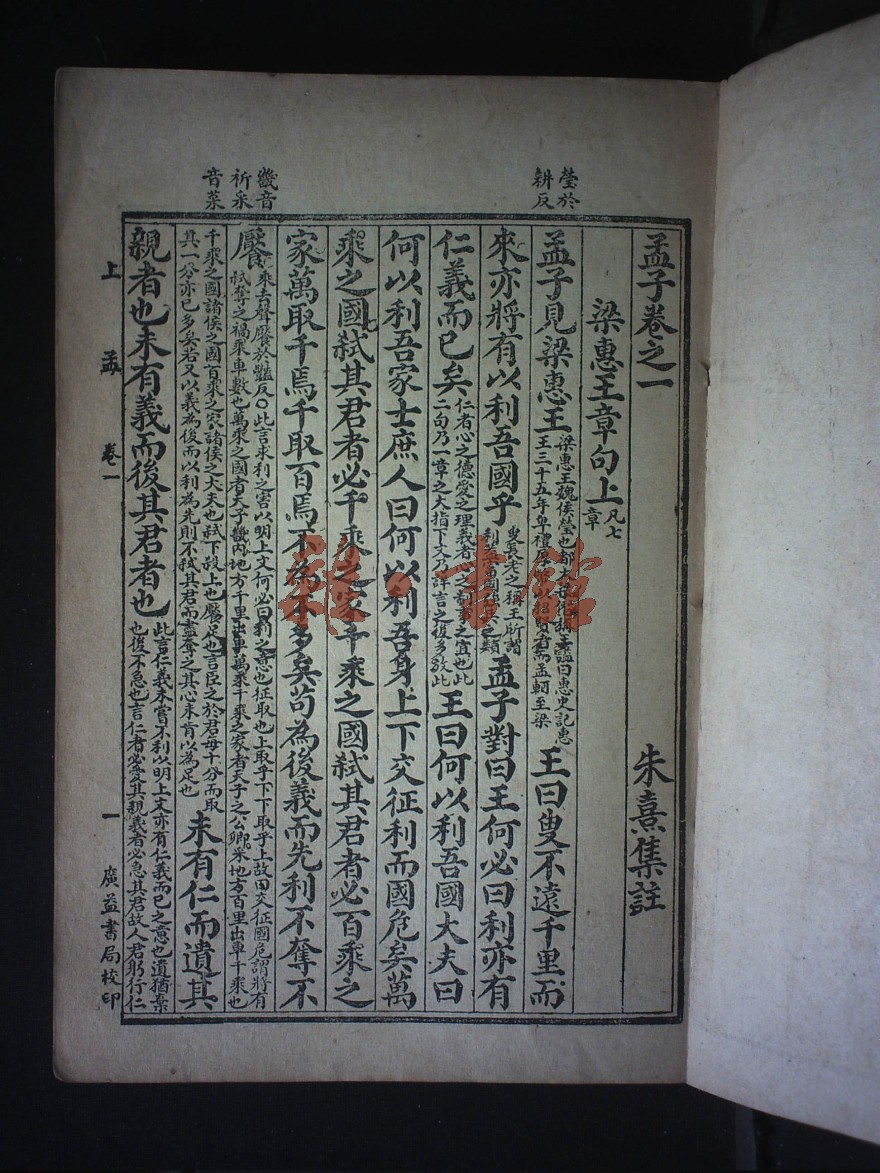 瑩於
耕反
畿音
祈采
音菜
孟子卷之一
朱熹集註
梁惠王章句上
凡七
章
孟子見梁惠王
梁惠王魏侯瑩也都大梁僭稱王諡曰惠史記惠
王三十五年卑禮厚幣以招賢者而孟軻至梁
王曰叟不遠千里而
來亦將有以利吾國乎
叟長老之稱王所謂
利蓋富國彊兵之類
孟子對曰王何必曰利亦有
仁義而已矣
仁者心之德愛之理義者心之制事之宜也此
二句乃一章之大指下文乃詳言之後多放此
王曰何以利吾國大夫曰
何以利吾家士庶人曰何以利吾身上下交征利而國危矣萬
乘之國弒其君者必千乘之家千乘之國弒其君者必百乘之
家萬取千焉千取百焉不為不多矣苟為後義而先利不奪不
饜
乘去聲饜於豔反○此言求利之害以明上文何必曰利之意也征取也上取乎下下取乎上故曰交征國危謂將有
弒奪之禍乘車數也萬乘之國者天子畿內地方千里出車萬乘千乘之家者天子之公卿采地方百里出車千乘也
千乘之國諸侯之國百乘之家諸侯之大夫也弒下殺上也饜足也言臣之於君每十分而取
其一分亦已多矣若又以義為後而以利為先則不弒其君而盡奪之其心未肯以為足也
未有仁而遺其
親者也未有義而後其君者也
此言仁義未嘗不利以明上文亦有仁義而已之意也遺猶棄
也後不急也言仁者必愛其親義者必急其君故人君躬行仁
上 孟 卷一 一 廣益書局校印